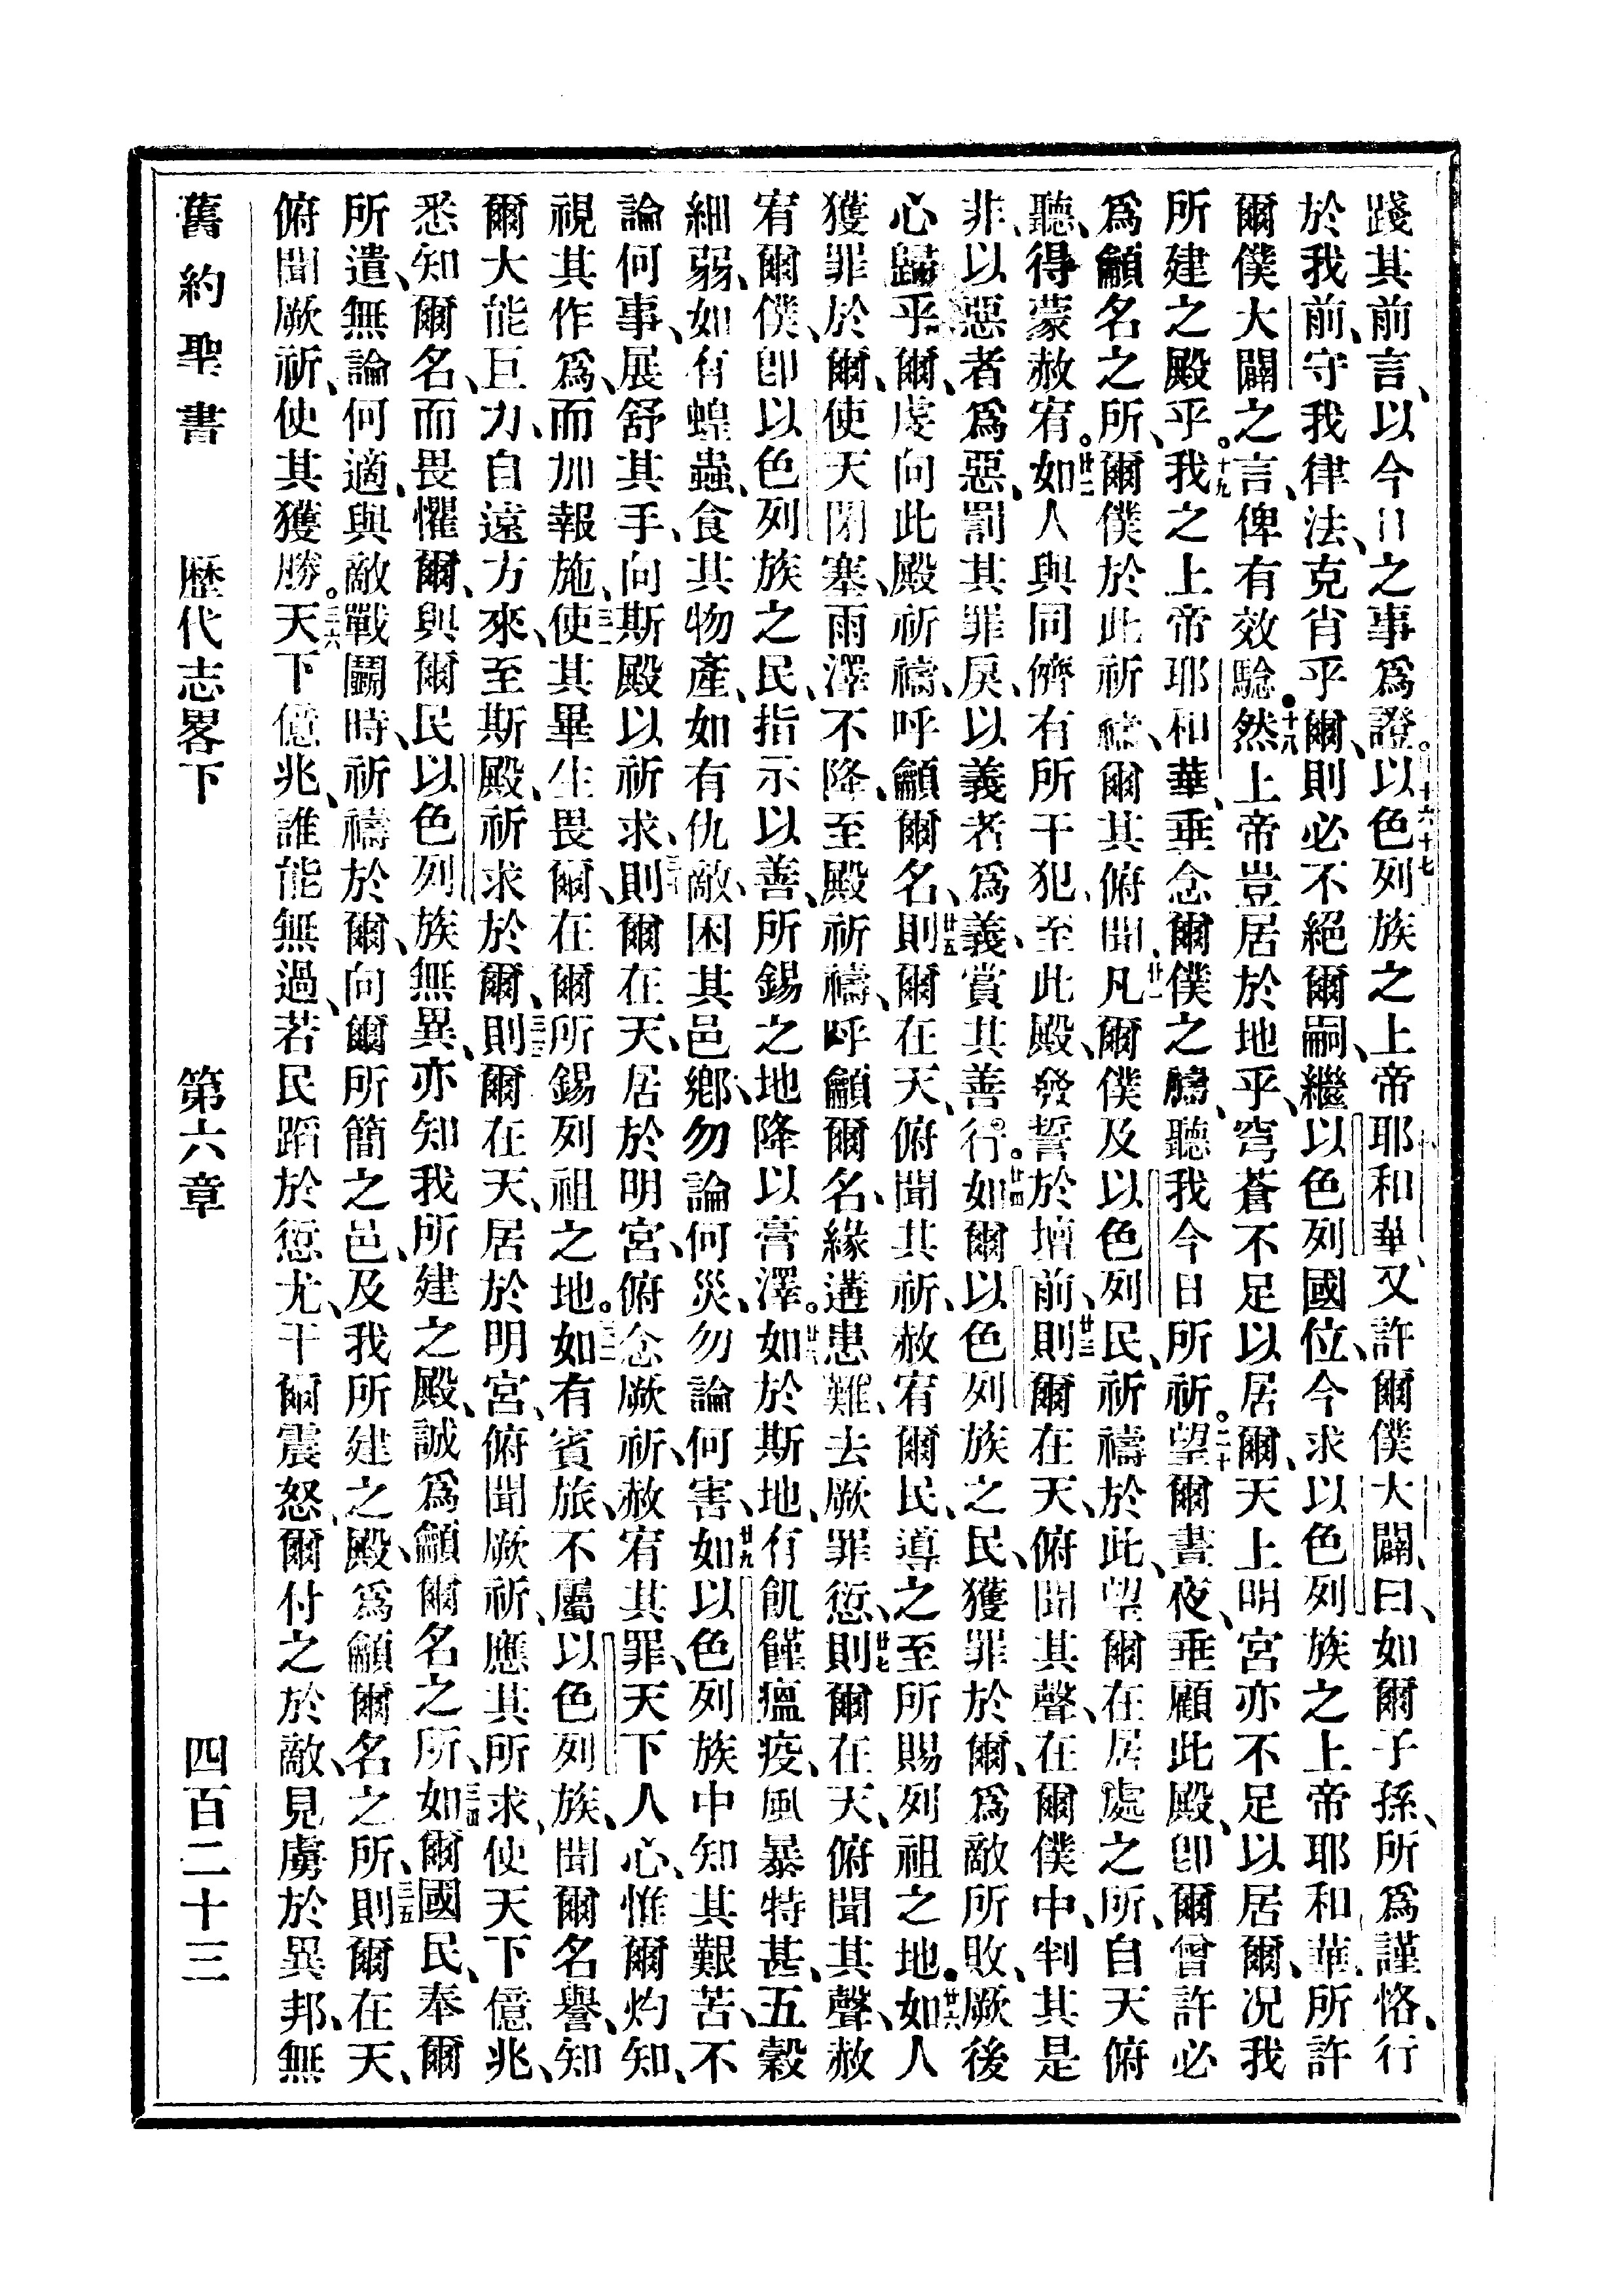 踐其前言、以今日之事爲證。十六十七以色列族之上帝耶和華、又許爾僕大闢、曰、如爾子孫、所爲謹恪、行
於我前、守我律法、克肖乎爾、則必不絕爾嗣、繼以色列國位、今求以色列族之上帝耶和華、所許
爾僕大闢之言、俾有效驗。十八然上帝豈居於地乎、穹蒼不足以居爾、天上明宮亦不足以居爾、况我
所建之殿乎。十九我之上帝耶和華、垂念爾僕之禱、聽我今日所祈。二十望爾晝夜、垂顧此殿、卽爾曾許必
爲籲名之所、爾僕於此祈禱、爾其俯聞、廿一凡爾僕及以色列民、祈禱於此、望爾在居處之所、自天俯
聽、得蒙赦宥。廿二如人與同儕有所干犯、至此殿、發誓於壇前、廿三則爾在天、俯聞其聲、在爾僕中、判其是
非、以惡者爲惡、罰其罪戾、以義者爲義、賞其善行。廿四如爾以色列族之民、獲罪於爾、爲敵所敗、厥後
心歸乎爾、虔向此殿祈禱、呼籲爾名、廿五則爾在天、俯聞其祈、赦宥爾民、導之至所賜列祖之地。廿六如人
獲罪於爾、使天閉塞、雨澤不降、至殿祈禱、呼籲爾名、緣遘患難、去厥罪愆、廿七則爾在天、俯聞其聲、赦
宥爾僕、卽以色列族之民、指示以善、所錫之地、降以膏澤。廿八如於斯地、有飢饉瘟疫、風暴特甚、五穀
細弱、如有蝗蟲、食其物產、如有仇敵、困其邑鄉、勿論何災、勿論何害、廿九如以色列族中、知其艱苦、不
論何事、展舒其手、向斯殿以祈求、三十則爾在天、居於明宮、俯念厥祈、赦宥其罪、天下人心、惟爾灼知、
視其作爲、而加報施、三一使其畢生畏爾、在爾所錫列祖之地。三二如有賓旅、不屬以色列族、聞爾名譽、知
爾大能巨力、自遠方來、至斯殿、祈求於爾、三三則爾在天、居於明宮、俯聞厥祈、應其所求、使天下億兆、
悉知爾名、而畏懼爾、與爾民以色列族無異、亦知我所建之殿、誠爲籲爾名之所、三四如爾國民、奉爾
所遣、無論何適、與敵戰鬭時、祈禱於爾、向爾所簡之邑、及我所建之殿、爲籲爾名之所、三五則爾在天、
俯聞厥祈、使其獲勝。三六天下億兆、誰能無過、若民蹈於愆尤、干爾震怒、爾付之於敵、見虜於異邦、無
舊約聖書　歷代志畧下　第六章　四百二十三